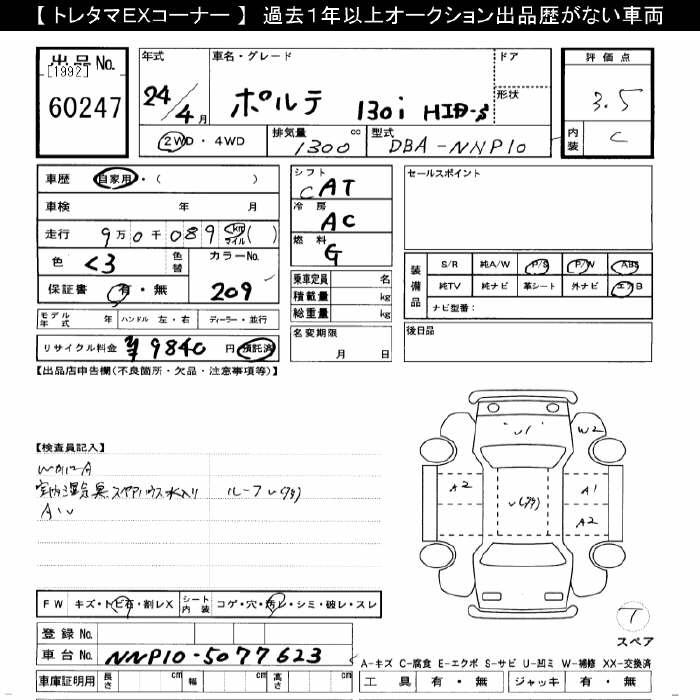 【 トレタマEXコーナー 】 過去１年以上オークション出品歴がない車両
出品No.
[1992]
60247
年式
24/4月
車名・グレード
ポルテ 130i HID-s
ドア
形状
②WD・4WD
排気量 cc
1300
型式
DBA-NNP10
評価点
3.5
内装
C
車歴 自家用・( )
車検 年 月
走行 9万0千089 km マイル ( )
色 くろ 色替
カラーNo. 209
保証書 有・無
モデル年式 年 ハンドル 左・右 ディーラー・並行
リサイクル料金 ¥9840 円 預託済
シフト CAT
冷房 AC
燃料 G
乗車定員 名
積載量 kg
総重量 kg
名変期限
月 日
セールスポイント
装備品
S/R 純A/W P/S P/W ABS
純TV 純ナビ 革シート 外ナビ エアB
ナビ型番：
後日品
【出品店申告欄(不良箇所・欠品・注意事項等)】
【検査員記入】
ルーフレ
U1
W2
A2
A1
A2
T
スペア
FW キズ・トビ石・割レX
シート内装 コゲ・穴・汚レ・シミ・破レ・スレ
登録No.
車台No. NNP10-5077623
車庫証明用 長さ cm 幅 cm 高さ cm
A-キズ C-腐食 E-エクボ S-サビ U-凹ミ W-補修 XX-交換済
工具 有・無 ジャッキ 有・無